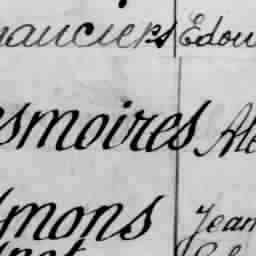 nanciers Edou
smoires Ale
mons Jean